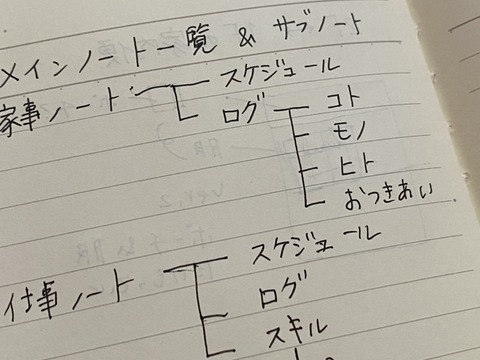 メインノート一覧 & サブノート
家事ノート スケジュール
ログ コト
モノ
ヒト
おつきあい
仕事ノート スケジュール
ログ
スキル